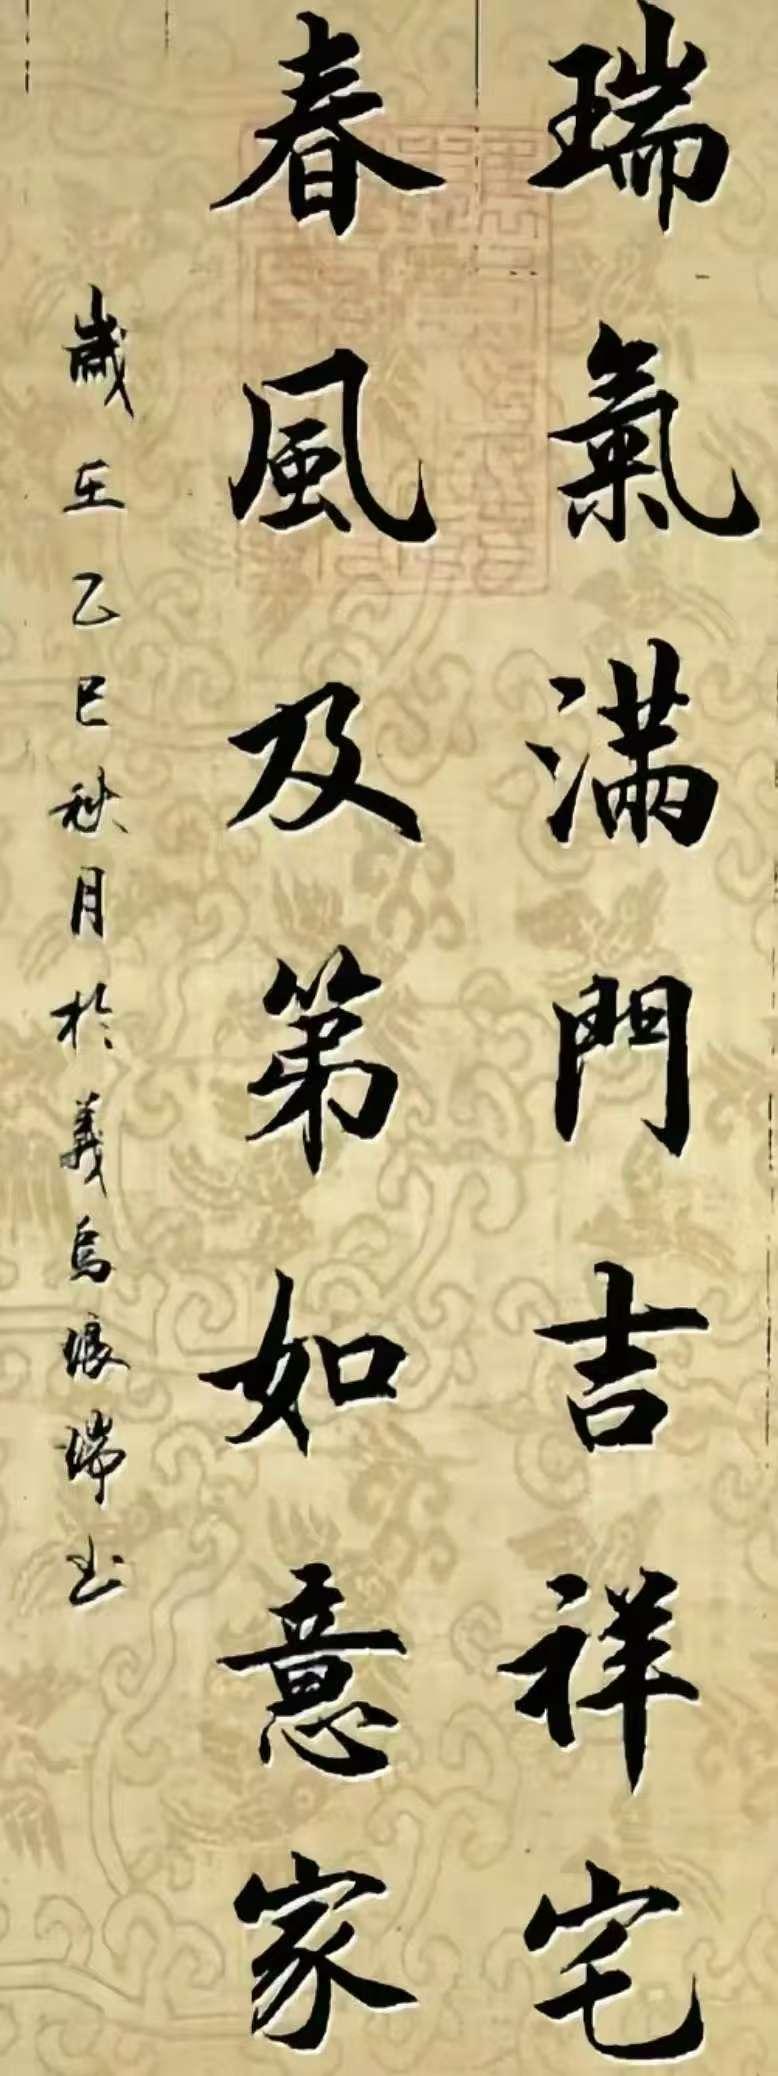 瑞氣滿門吉祥宅
春風及第如意家
歲在乙巳秋月於義烏振瑞書